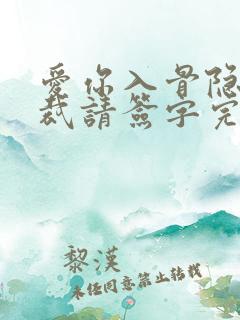 爱你入骨隐
裁請簽字完
黎漢
未经同意禁止转载